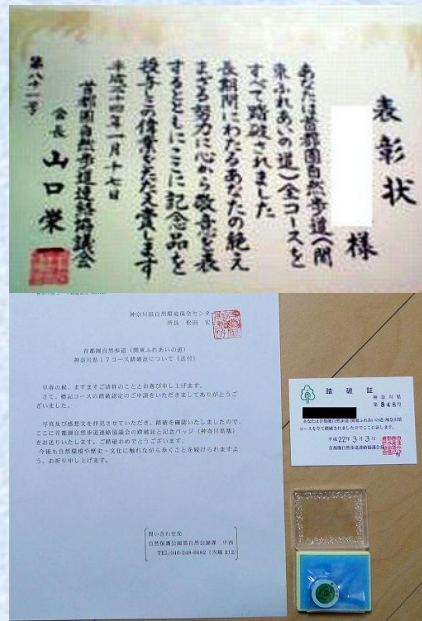 表彰状
様
あなたは首都圏自然歩道(関
東ふれあいの道)全コースを
すべて踏破されました
長期間にわたるあなたの絶え
まざる努力に心から敬意を表
するとともにここに記念品を
授与しこの偉業をたたえ賞します
平成二十四年一月十七日
首都圏自然歩道連絡協議会
会長 山口栄
第八十一号
神奈川県自然環境保全センター
所長
首都圏自然歩道(関東ふれあいの道)
神奈川県17コース踏破証について(送付)
早春の候、ますますご清祥のこととお喜び申し上げます。
さて、標記コースの踏破認定のご申請をいただきましてありがとうご
ざいました。
写真及び感想文を拝見させていただき、踏破を確認いたしましたので、
ここに首都圏自然歩道連絡協議会の踏破証と記念バッジ(神奈川県版)
をお送りいたします。ご踏破おめでとうございます。
今後も自然環境や歴史・文化に触れながら歩くことを続けられますよ
う、お祈り申し上げます。
問い合わせ先
自然保護公園部自然公園課
TEL:046-248-6682(内線 212)
踏破証
神奈川県
第848号
平成22年3月3日
首都圏自然歩道連絡協議会